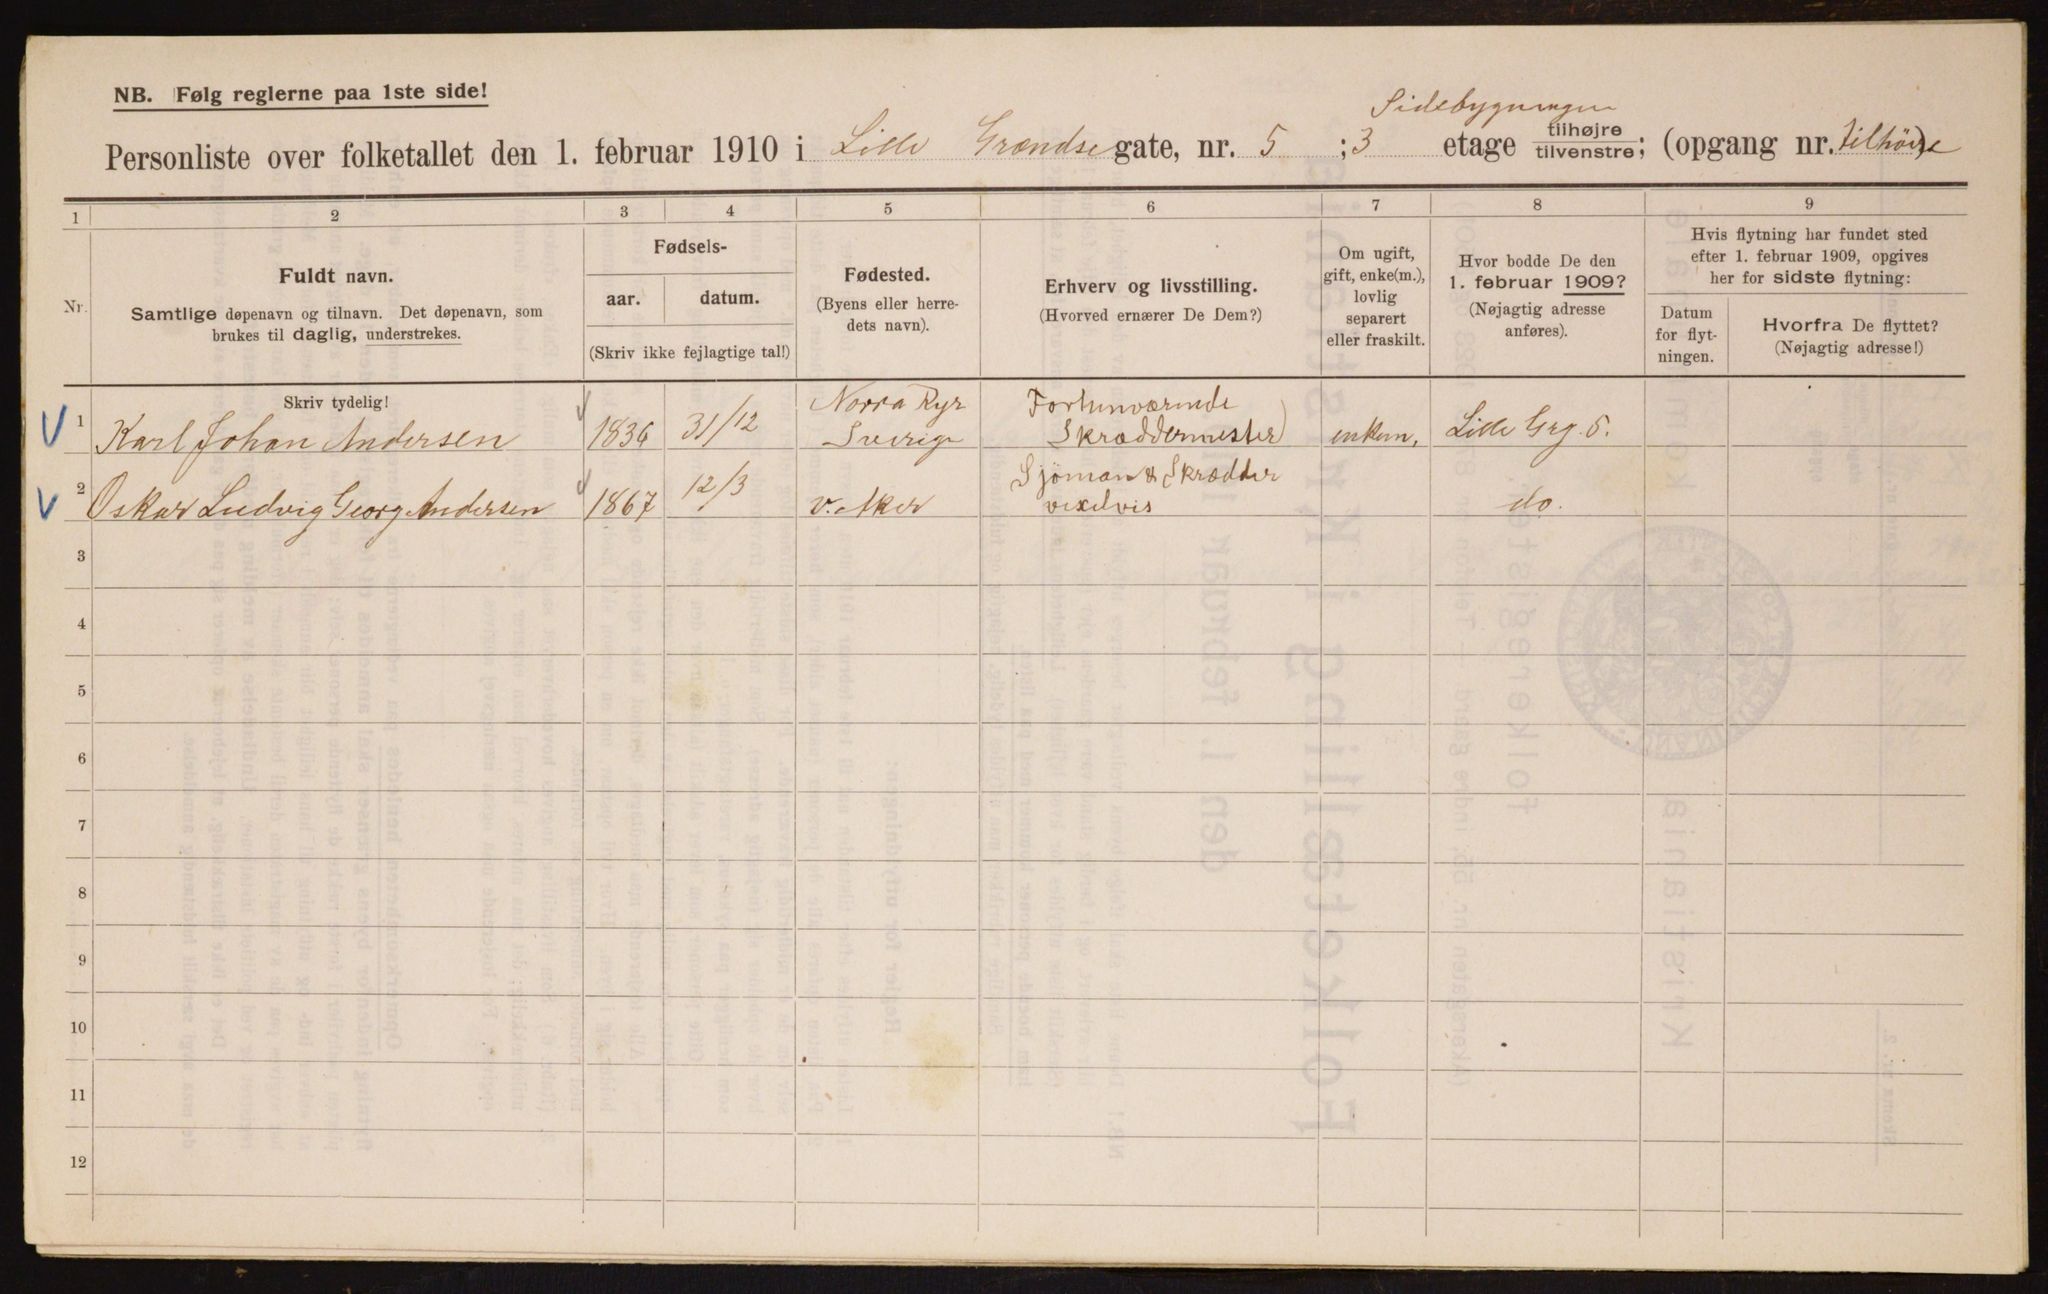 NB. Følg reglerne paa 1ste side!
Sidebygningen
Personliste over folketallet den 1. februar 1910 i Lille Grændse gate, nr. 5 ; 3 etage tilhøjre tilvenstre; (opgang nr. tilhöire)
1 2 3 4 5 6 7 8 9
Nr.
Fuldt navn.
Samtlige døpenavn og tilnavn. Det døpenavn, som
brukes til daglig, understrekes.
Fødsels-
aar. datum.
(Skriv ikke fejlagtige tal!)
Fødested.
(Byens eller herre-
dets navn).
Erhverv og livsstilling.
(Hvorved ernærer De Dem?)
Om ugift,
gift, enke(m.),
lovlig
separert
eller fraskilt.
Hvor bodde De den
1. februar 1909?
(Nøjagtig adresse
anføres).
Hvis flytning har fundet sted
efter 1. februar 1909, opgives
her for sidste flytning:
Datum
for flyt-
ningen.
Hvorfra De flyttet?
(Nøjagtig adresse!)
Skriv tydelig!
1 Karl Johan Andersen 1834 31/12 Norra Ryr Sverige Forhenværende Skræddermester enkem, Lille Grg. 5.
2 Oskar Ludvig Georg Andersen 1867 12/3 v. Aker Sjöman & Skrædder vexelvis do.
3
4
5
6
7
8
9
10
11
12